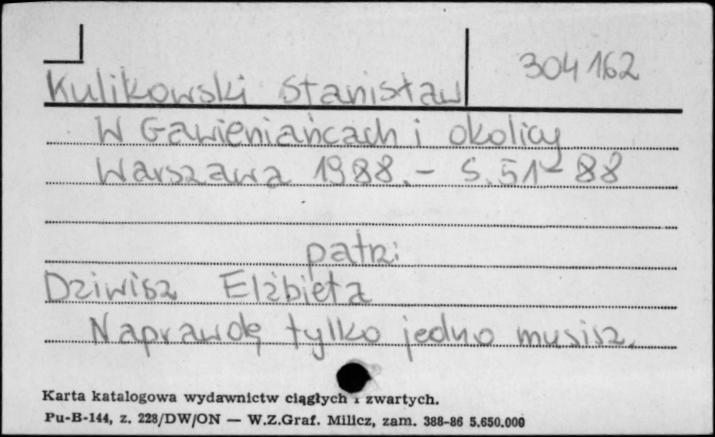 304 162
Kulikowski Stanisław
W Gawieniańcach i okolicy
Warszawa 1988.- S.51-88
patrz:
Dziwisz Elżbieta
Naprawdę tylko jedno musisz.
Karta katalogowa wydawnictw ciągłych i zwartych.
Pu-B-144, z. 228/DW/ON — W.Z.Graf. Milicz, zam. 388-86 5.650.000